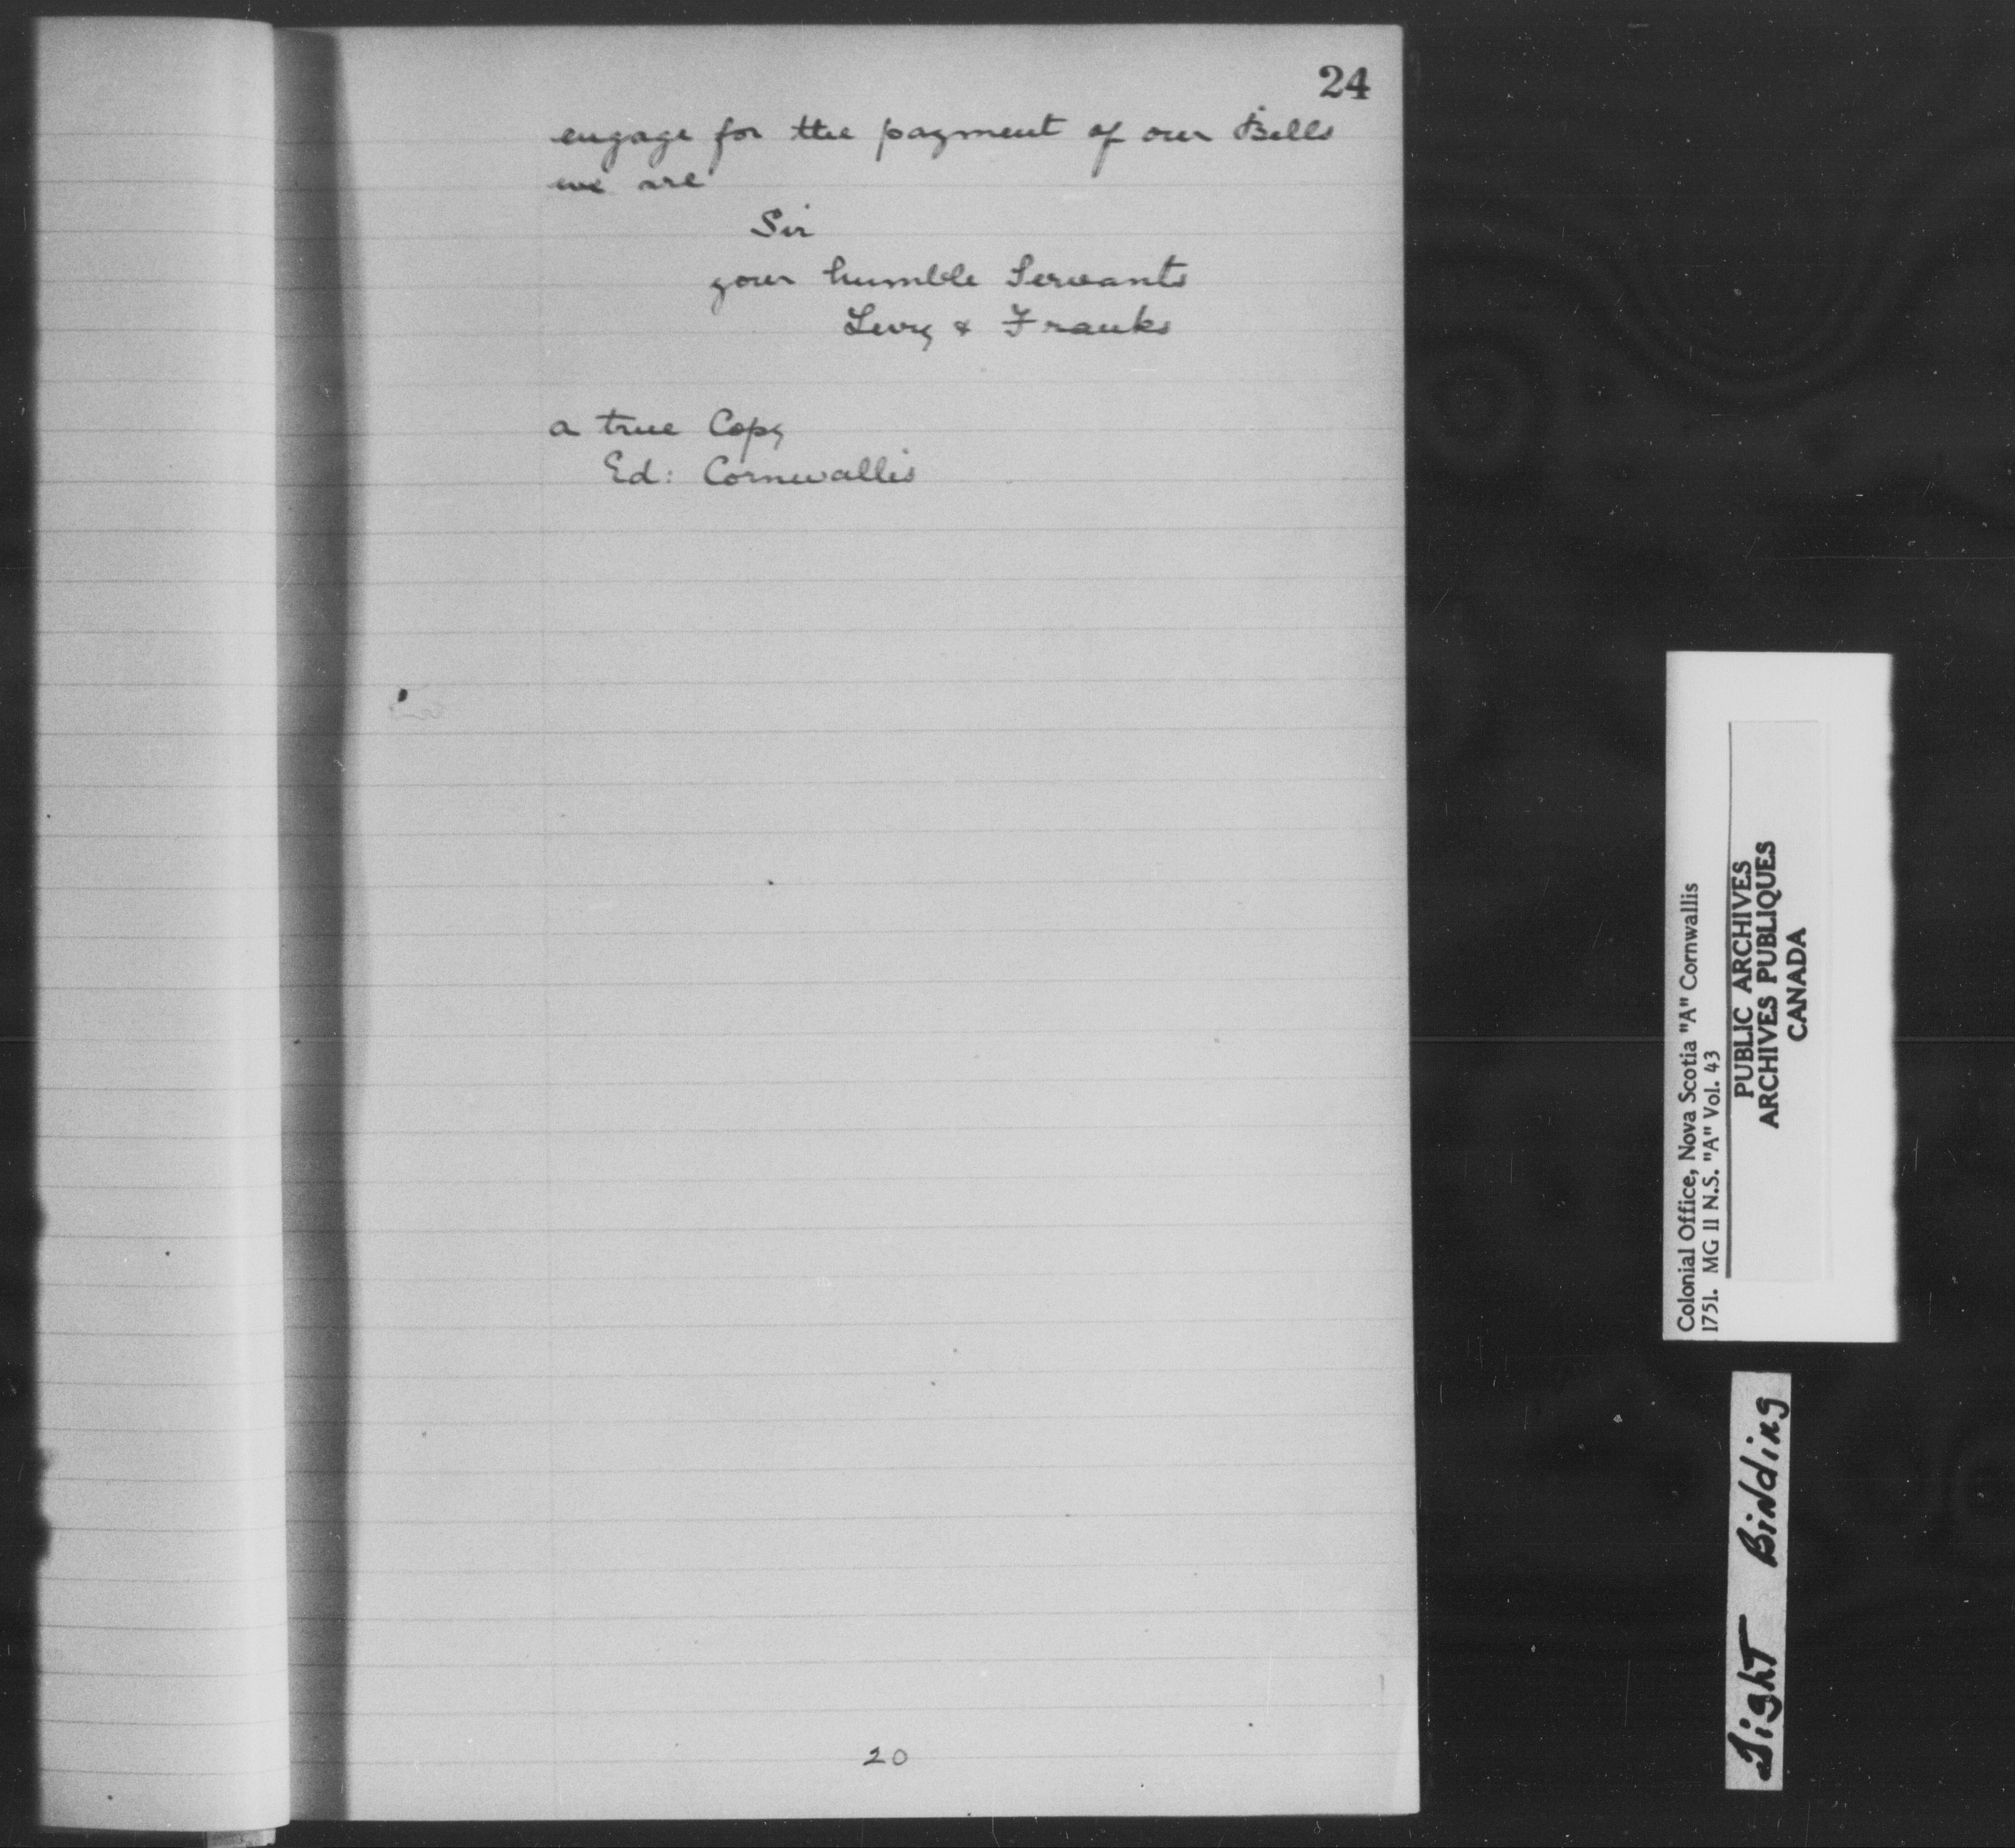 24
engage for the payment of our Bills
we are
Sir
your humble Servants
Levy & Franks
a true Copy
Ed: Cornwallis
20
Colonial Office, Nova Scotia "A" Cornwallis
1751. MG 11 N.S. "A" Vol. 43
PUBLIC ARCHIVES
ARCHIVES PUBLIQUES
CANADA
Tight Binding